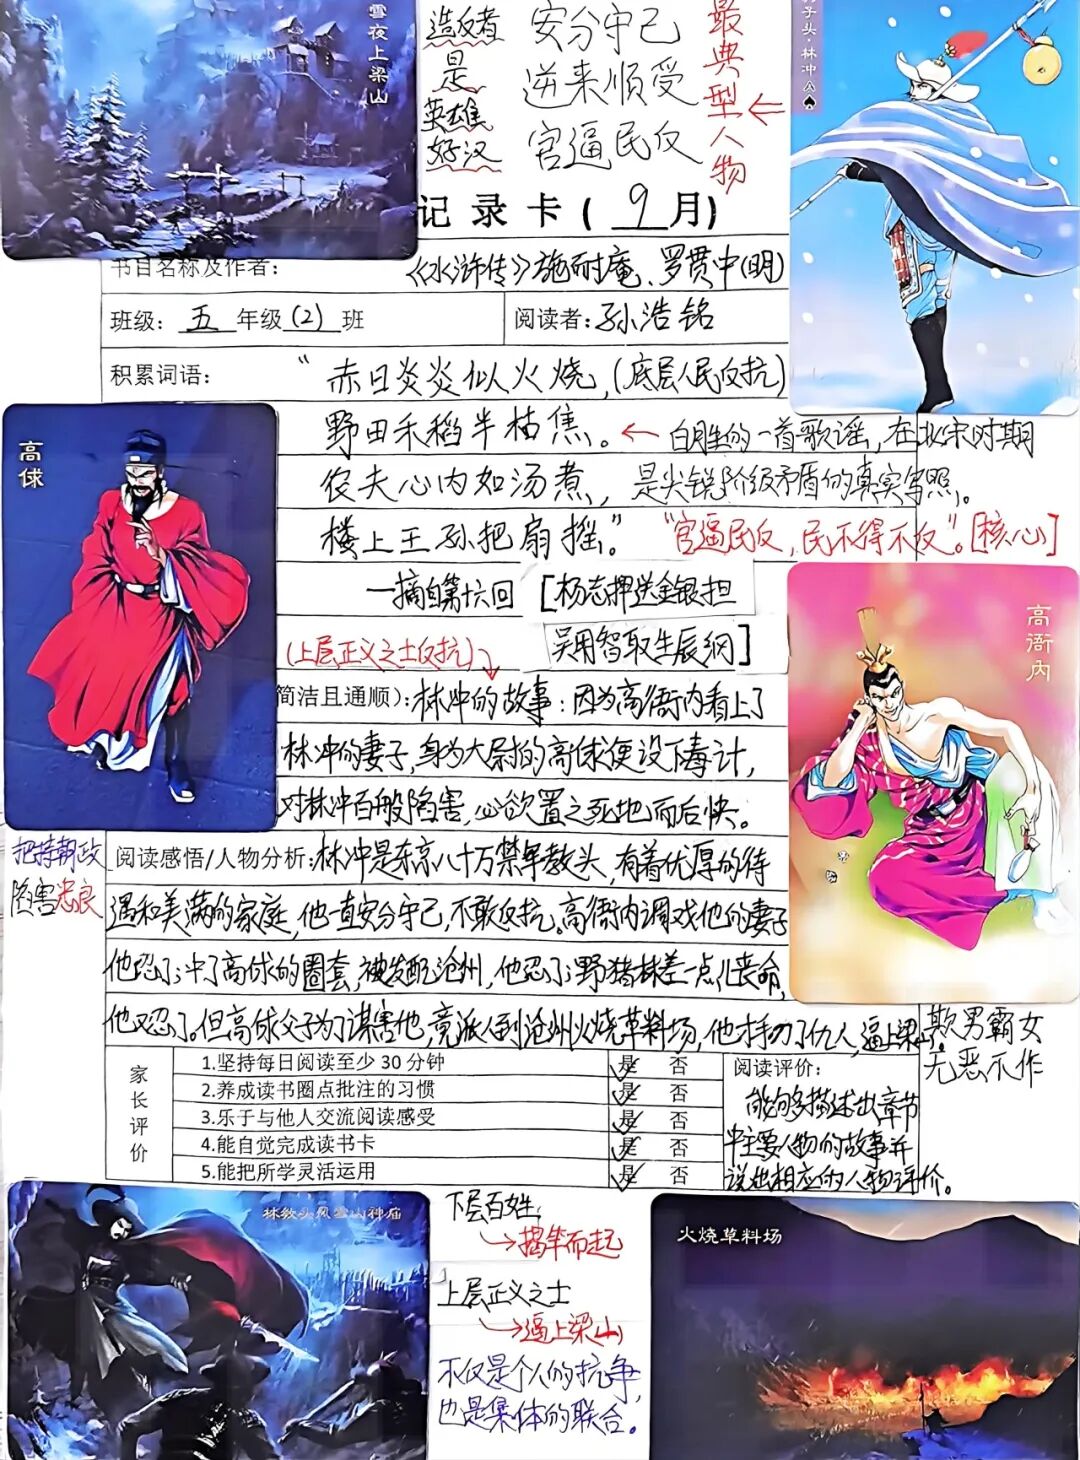 雪夜上梁山
造反者
是
英雄
好汉
安分守己
逆来顺受
官逼民反
最典型人物
子头·林冲
记录卡(9月)
书目名称及作者:
《水浒传》施耐庵、罗贯中(明)
班级:五年级(2)班
阅读者:孙浩铭
积累词语:
“赤日炎炎似火烧,(底层人民反抗)
野田禾稻半枯焦。←白胜的一首歌谣,在北宋时期
农夫心内如汤煮,是尖锐阶级矛盾的真实写照。
楼上王孙把扇摇。”“官逼民反,民不得不反”。[核心]
—摘自第十六回[杨志押送金银担
吴用智取生辰纲]
(上层正义之士反抗)
高俅
高衙内
简洁且通顺):林冲的故事:因为高衙内看上了
林冲的妻子,身为大尉的高俅便设下毒计,
对林冲百般陷害,必欲置之死地而后快。
把持朝政
陷害忠良
阅读感悟/人物分析:林冲是东京八十万禁军教头,有着优厚的待
遇和美满的家庭,他一直安分守己,不敢反抗。高衙内调戏他的妻子
他忍了;中了高俅的圈套,被发配沧州,他忍了;野猪林差一点儿丧命,
他又忍了。但高俅父子为了谋害他,竟派人到沧州火烧草料场,他才手刃了仇人,逼上梁山。
欺男霸女
无恶不作
家长评价
1.坚持每日阅读至少30分钟 是 否
2.养成读书圈点批注的习惯 是 否
3.乐于与他人交流阅读感受 是 否
4.能自觉完成读书卡 是 否
5.能把所学灵活运用 是 否
阅读评价:
能够多描述出章节
中主要人物的故事并
说出相应的人物评价。
林教头风雪山神庙
下层百姓:
→揭竿而起
上层正义之士
→逼上梁山
不仅是个人的抗争,
也是集体的联合。
火烧草料场